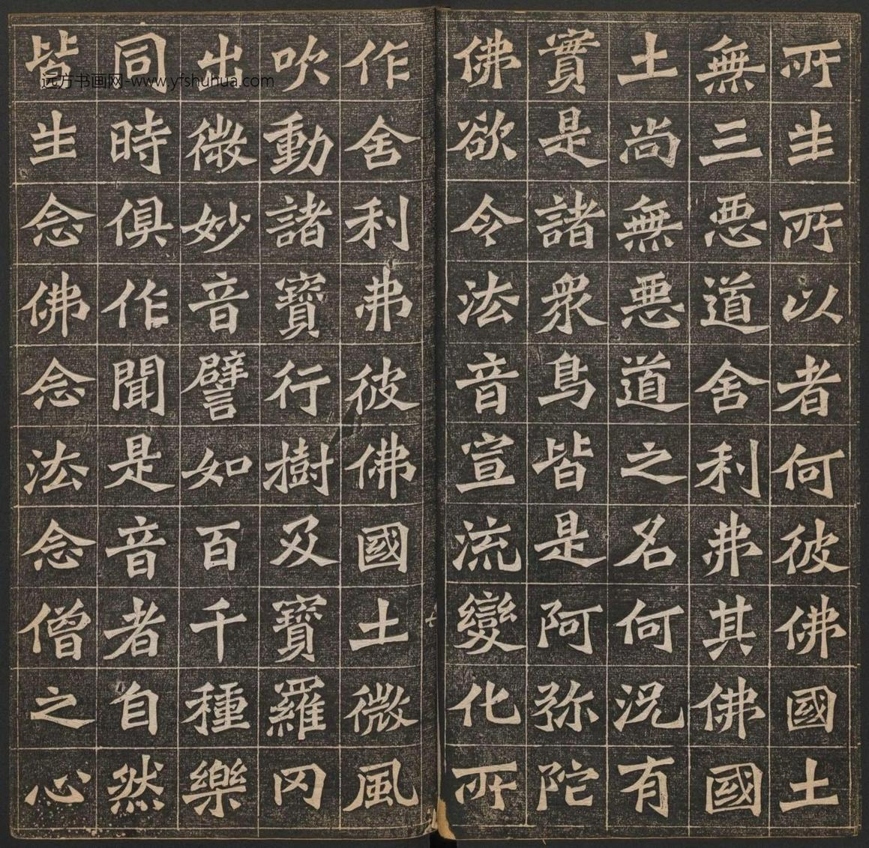 所生所以者何彼佛國土
無三悪道舍利弗其佛國
土尚無悪道之名何況有
實是諸衆鳥皆是阿弥陀
佛欲令法音宣流變化所
作舍利弗彼佛國土微風
吹動諸寶行樹及寶羅冈
出微妙音譬如百千種樂
同時俱作聞是音者自然
皆生念佛念法念僧之心
远方书画网-www.yfshuhua.com